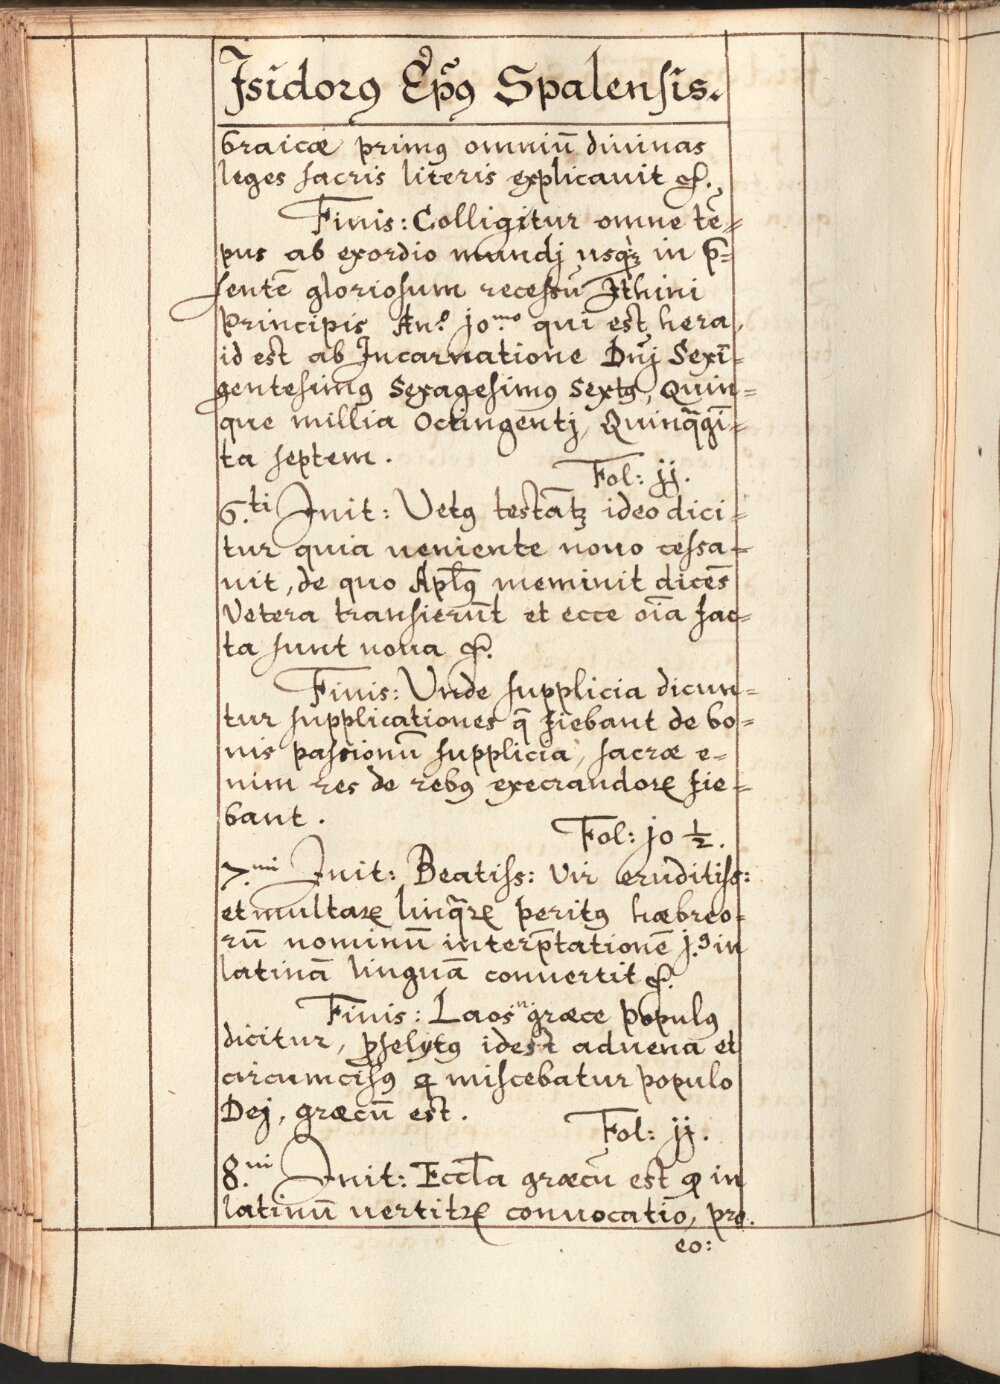 Isidorꝰ Ep̃ꝰ Spalensis.
braicæ primꝰ omniū diuinas
leges sacris literis explicauit &c.
Finis: Colligitur omne tē=
pus ab exordio mundj usqꝫ in p̄=
sentē gloriosum recessū Sthini
Principis An.º jo.mo qui est hera,
id est ab Incarnatione Dn̄j Sexī=
gentesimꝰ Sexagesimꝰ Sextꝰ, Quin=
que millia Octingentj, Quinq̄gī=
ta septem.
Fol: jj.
6.ti Init: Vetꝰ testāt̄ꝫ ideo dici=
tur quia ueniente nouo cessa=
uit, de quo Apl̄ꝰ meminit dicēs
Vetera transierūt et ecce oīa fac=
ta sunt noua &c.
Finis: Vnde supplicia dicun=
tur supplicationes q̄ fiebant de bo=
nis passionū supplicia, sacræ e=
nim res de rebꝰ execrandoꝝ fie=
bant.
Fol: jo ½.
7.mi Init: Beatiss: Vir eruditiss:
et multaꝝ linq̄ꝝ peritꝰ hæbreo=
rū nominū interp̄tationē j.º in
latinā linguā conuertit &c.
Finis: Laos græce populꝰ
dicitur, ꝓselytꝰ idest aduena et
circumcisꝰ ꝗ miscebatur populo
Dej, græcū est.
Fol: jj.
8.ui Init: Eccl̄a græcū est ꝙ in
latinū uertitꝝ conuocatio, pro.
eo: